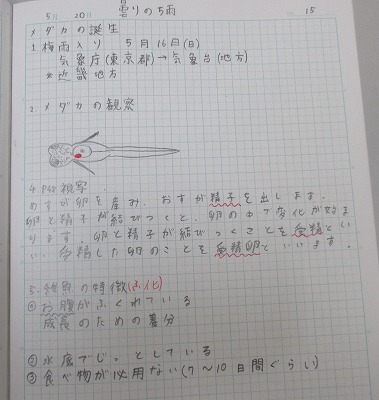 5月 20日 曇りの5雨 15
メダカの誕生
1. 梅雨入り 5月16日(日)
気象庁(東京都)→気象台(地方)
※近畿地方
2. メダカの観察
4. P42視写
めすが卵を産み、おすが精子を出します。
卵と精子が結びつくと、卵の中で変化が始ま
ります。卵と精子が結びつくことを受精とい
い、受精した卵のことを受精卵といいます。
5. 稚魚の特徴(ふ化)
①お腹がふくれている
成長のための養分
②水底でじっとしている
③食べ物が必用ない(7〜10日間ぐらい)